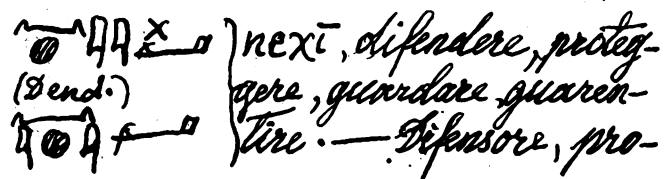 𓈖𓐍𓇌𓏴𓂡 } neχī, difendere, proteg-
(Dend.) gere, guardare, guaren-
tire. — Difensore, pro-